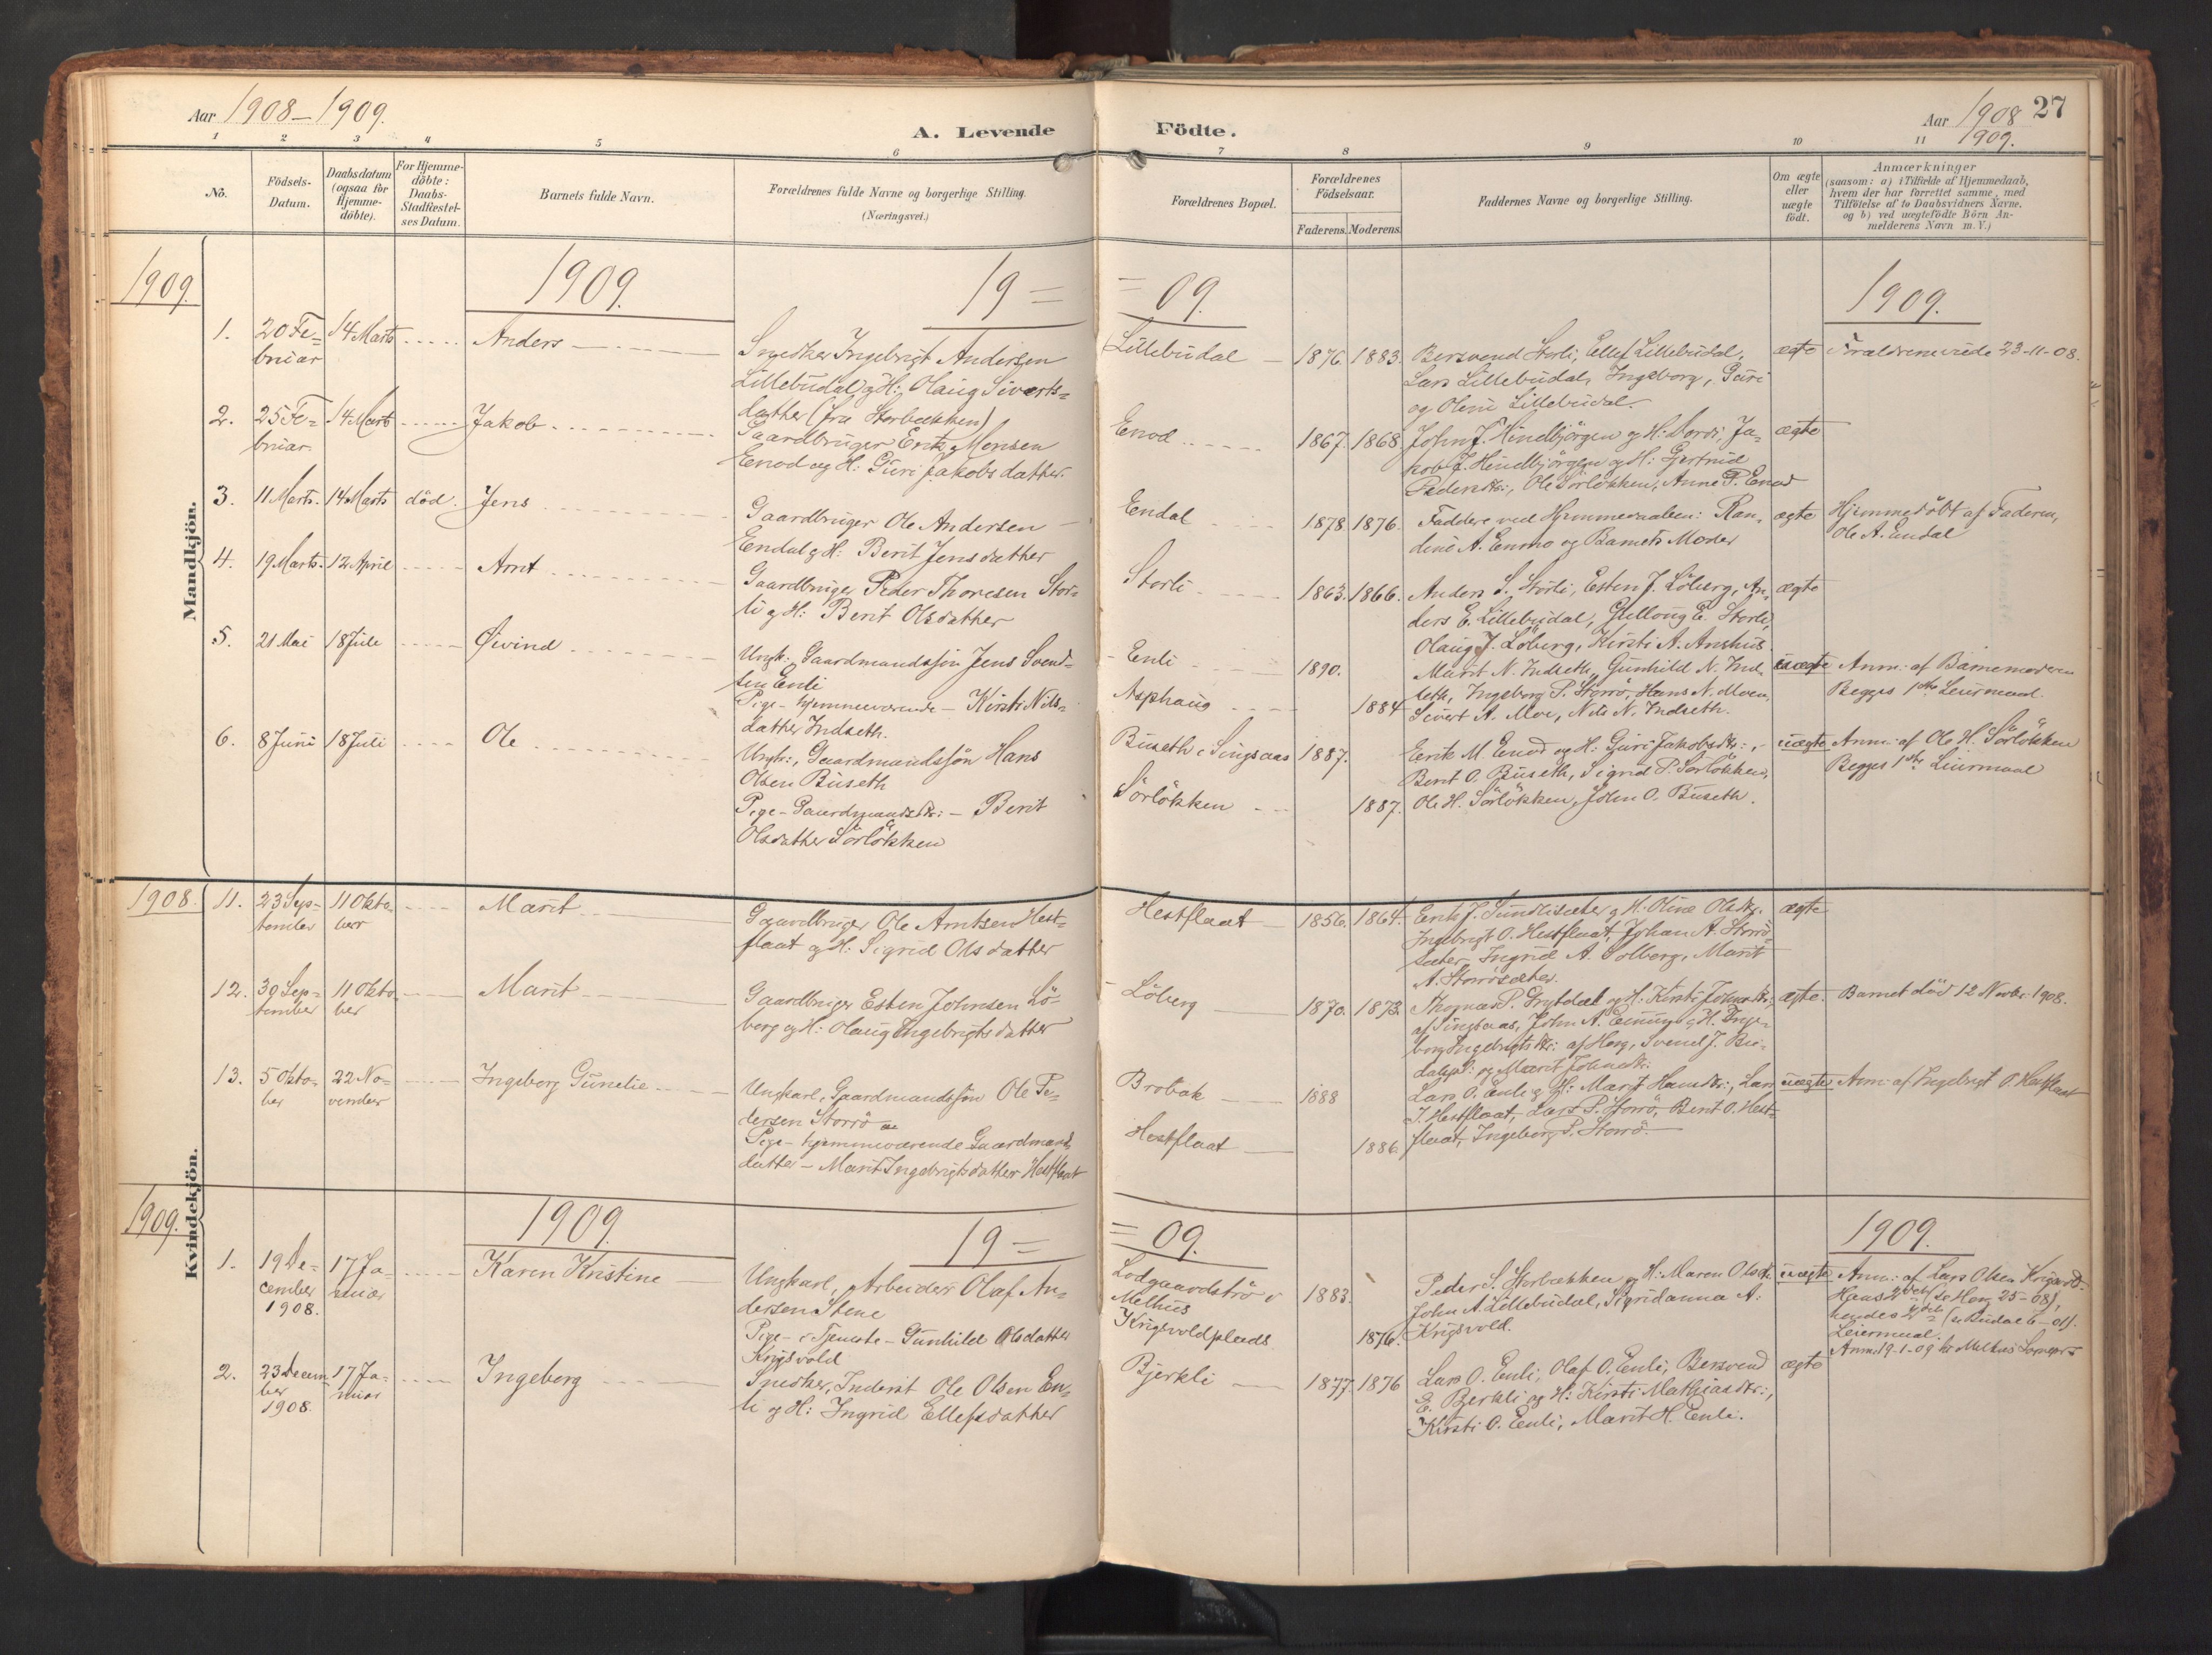 Aar 1908-1909.
A. Levende
Födte.
Aar 1908
1909.
27
1
2
3
4
5
6
7
8
9
10
11
No.
Födsels-
Datum.
Daabsdatum
(ogsaa for
Hjemme-
döbte).
For Hjemme-
döbte:
Daabs-
Stadfæstel-
ses Datum.
Barnets fulde Navn.
Forældrenes fulde Navne og borgerlige Stilling.
(Næringsvei.)
Forældrenes Bopæl.
Forældrenes
Födselsaar.
Faderens.
Moderens.
Faddernes Navne og borgerlige Stilling.
Om ægte
eller
uægte
födt.
Anmærkninger
(saasom: a) i Tilfælde af Hjemmedaab,
hvem der har forrettet samme, med
Tilföielse af to Daabsvidners Navne,
og b) ved uægtefödte Börn An-
melderens Navn m. V.)
Mandkjön.
1909.
1909.
19=
=09.
1909.
1.
20 Fe-
bruar
14 Marts
Anders
Snedker Ingebrigt Andersen
Lillebudal og H: Olaug Siverts-
datter (fra Storbækken)
Lillebudal
1876.
1883.
Bersvend Storli, Ellef Lillebudal,
Lars Lillebudal, Ingeborg, Guri
og Oline Lillebudal.
ægte
Forældrene viede 23-11-08.
2.
25 Fe-
bruar.
14 Marts
Jakob
Gaardbruger Erik Monsen
Enod og H: Guri Jakobsdatter.
Enod
1867.
1868.
John J. Hindbjörgen og H: Dordi, Ja-
kob J. Hindbjörgen og H: Gjertrud
Pedersdtr:, Ole Sörlökken, Anne P. Enod
ægte
3.
11 Marts.
14 Marts
död.
Jens
Gaardbruger Ole Andersen
Endal og H: Berit Jensdatter
Endal
1878.
1876.
Faddere ved Hjemmedaaben: Ran-
dine A. Enmo og Barnets Moder
ægte
Hjemmedöbt af Faderen,
Ole A. Endal
4.
19 Marts.
12 April
Arnt
Gaardbruger Peder Thoresen Stor-
li og H: Berit Olsdatter
Storli
1863.
1866.
Anders S. Storli, Esten J. Löberg, An-
ders E. Lillebudal, Gullaug E. Storli,
Olaug J. Löberg, Kirsti A. Anshus.
ægte
5.
21 Mai
18 Juli
Øivind
Ungk: Gaardmandssön Jens Svend-
sen Enli
Pige - hjemmeværende - Kirsti Nils-
datter Indseth.
Enli
Asphaug
1890.
1884
Marit N. Indseth, Gunhild N. Ind-
seth, Ingeborg P. Storrö, Hans N. Moen,
Sivert A. Moe, Nils N. Indseth.
uægte
Anm: af Barnemoderen
Begges 1ste Leiermaal.
6.
8 Juni
18 Juli
Ole
Ungk:, Gaardmandssön Hans
Olsen Buseth
Pige - Gaardmandsdtr: - Berit
Olsdatter Sörlökken
Buseth i Singsaas
Sörlökken
1887.
1887.
Erik M. Enod og H: Guri Jakobsdtr:,
Berit O. Buseth, Sigrid P. Sörlökken,
Ole H. Sörlökken, John O. Buseth.
uægte
Anm: af Ole H. Sörlökken
Begges 1ste Leiermaal
Kvindekjön.
1908.
11.
23 Sep-
tember
11 Okto-
ber
Marit
Gaardbruger Ole Arntsen Hest-
flaat og H: Sigrid Olsdatter
Hestflaat
1856.
1864.
Erik J. Sundlisæter og H: Oline Olsdtr.
Ingebrigt O. Hestflaat, Johan A. Storrö-
sæter, Ingrid A. Solberg, Marit
A. Storrösæter.
ægte
12.
30 Sep-
tember
11 Okto-
ber
Marit
Gaardbruger Esten Johnsen Lö-
berg og H: Olaug Ingebrigtsdatter
Löberg
1870.
1873.
Thomas P. Frytdal og H: Kirsti Johnsdtr:
af Singsaas, John A. og H. Inge-
borg Ingebrigtsdtr: af Horg, Svend J. Bu-
dalspl: og Marit Johnsdtr:
ægte.
Barnet död 12 Novbr. 1908.
13.
5 Okto-
ber
22 No-
vember
Ingeborg Gunelie
Ungkarl, Gaardmandssön Ole Pe-
dersen Storrö
Pige - hjemmeværende Gaardmands-
datter - Marit Ingebrigtsdatter Hestflaat
Brobak
Hestflaat
1888
1886.
Lars O. Enli og H: Marit Hansdtr:, Lars
I. Hestflaat, Lars P. Storrö, Berit O. Hest-
flaat, Ingeborg P. Storrö.
uægte
Anm: af Ingebrigt O. Hestflaat
1909.
1909.
19=
=09.
1909.
1.
19 De-
cember
1908.
17 Ja-
nuar
Karen Kristine
Ungkarl, Arbeider Olaf An-
dersen Stene
Pige - i Tjeneste - Gunhild Olsdatter
Krigsvold
Lodgaardströ i
Melhus
Krigsvoldplads
1883.
1876.
Peder S. Storbækken og H: Maren Olsdtr.
John A. Lillebudal, Sigridanna A:
Krigsvold.
uægte
Anm: af Lars Olsen
Hans 2det (se Horg 25-08),
hendes 2det (se Budal 6-01).
Leiermaal.
Anm. 19-1-09 til Melhus
2.
23 Decem-
ber
1908.
17 Ja-
nuar
Ingeborg
Snedker, Inderst Ole Olsen En-
li og H: Ingrid Ellefsdatter
Bjerkli
1877.
1876
Lars O. Enli, Olaf O. Enli, Bersvend
E. Berkli og H: Kirsti Mathiasdtr:,
Kirsti O. Enli, Marit H. Enli.
ægte